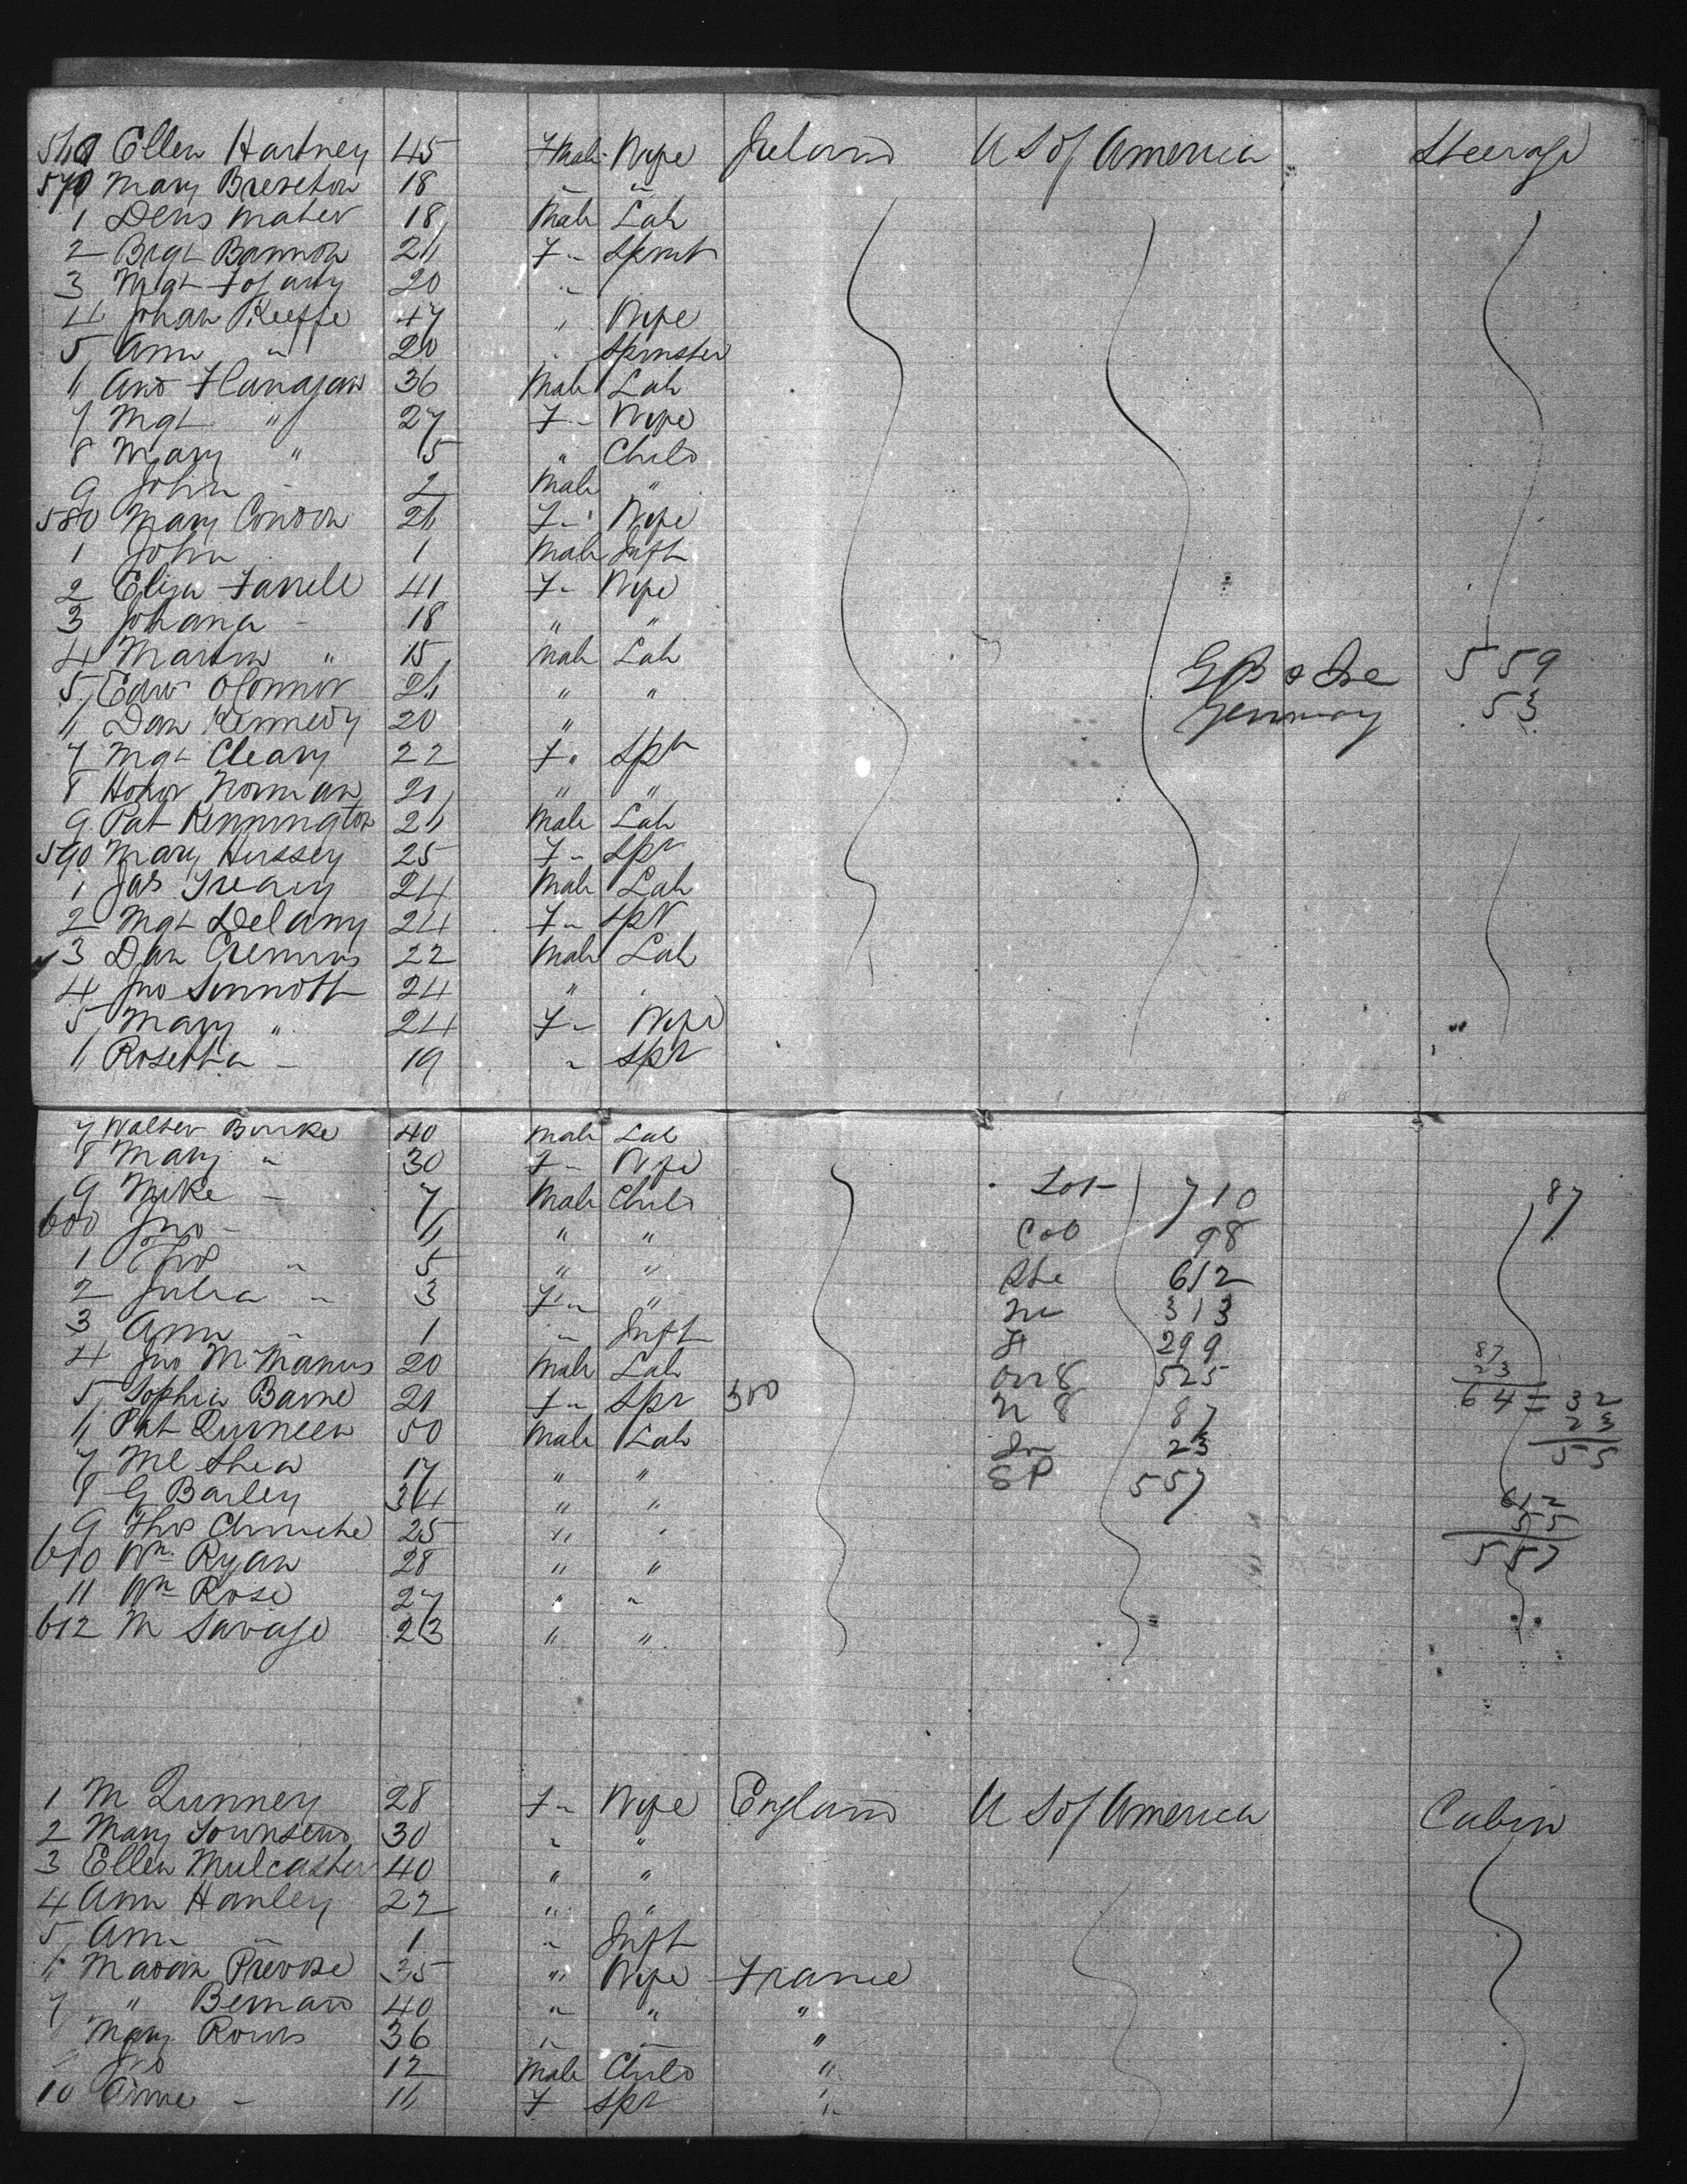 569 Ellen Hartney 45 Fmale Wife Ireland U S of America Steerage
570 Mary Brereton 18 " "
1 Dens Maher 18 Male Lab
2 Brgt Bannon 26 F " Spinst
3 Mgt Fogarty 20 "
4 Johan Keeffe 47 " Wife
5 Ann " 20 Spinster
6 And Flanagan 36 Male Lab
7 Mgt " 27 F " Wife
8 Mary " 5 " Child
9 John " 2 Male "
580 Mary Condon 26 F " Wife
1 John 1 Male Inft
2 Eliza Farrell 41 F " Wife
3 Johana " 18 " "
4 Martin " 15 Male Lab
5 Edwd OConnor 26 " " G B & Ire 559
6 Dan Kennedy 20 " Germany 53
7 Mgt Cleary 22 F " Spr
8 Honor Norman 21 " "
9 Pat Kennington 26 Male Lab
590 Mary Hussey 25 F " Spr
1 Jas Treacy 24 Male Lab
2 Mgt Delany 24 F " Spr
3 Dan Cremins 22 Male Lab
4 Jno Sinnott 24 "
5 Mary " 24 F " Wife
6 Rosetta " 19 " Spr
7 Walter Burke 40 Male Lab
8 Mary " 30 F " Wife
9 Mike " 7 Male Child Tot 710 87
600 Jno " 6 " " Cab 98
1 Thos " 5 " " Ste 612
2 Julia " 3 F " " M 313
3 Ann " 1 " Inft F 299 87
4 Jno McManus 20 Male Lab Ovr 8 525 23
5 Sophia Barne 21 F " Spr 300 U 8 87 64 = 32
6 Pat Quineen 50 Male Lab In 23 23
7 Ml Shea 17 " " S P 557 55
8 G Barley 34 " " 612
9 Thos 25 " " 55
610 Wm Ryan 28 " " 557
11 Wm Rose 27 " "
612 M Savage 23 " "
1 M Lunney 28 F " Wife England U S of America Cabin
2 Mary Townsend 30 " "
3 Ellen Mulcaster 40 " "
4 Ann Hanley 27 " "
5 Ann " 1 " Inft
6 Madam Prevose 35 " Wife France
7 " Bernard 40 " " "
Mary Rouns 36 " " "
Jno 12 Male Child "
10 Anne " 16 F Spr "